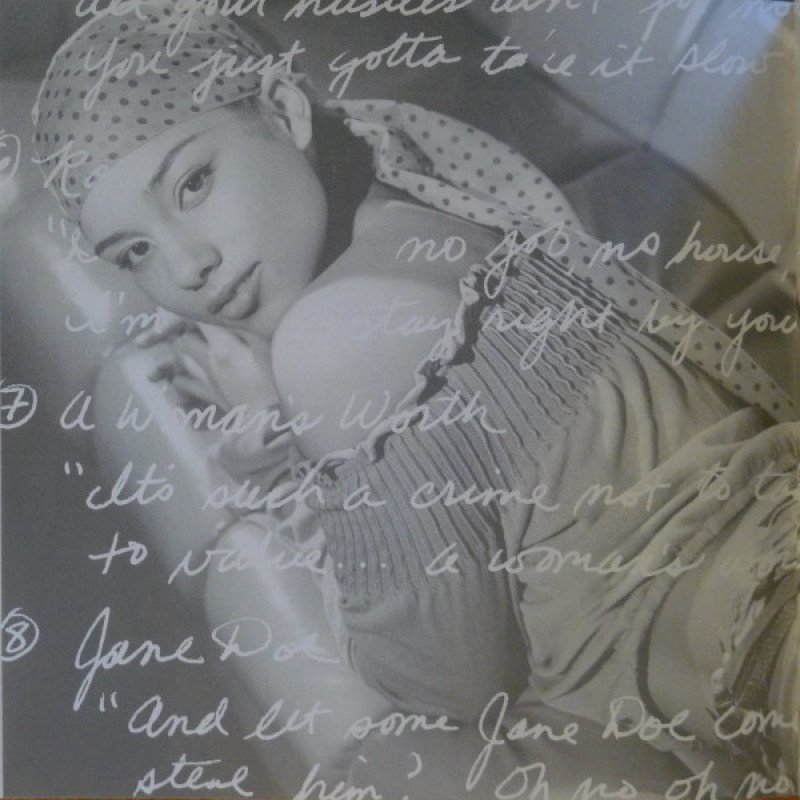 all your hustles ain't for no
You just gotta take it slow
6
no job, no house,
i'm stay right by you
7 A Woman's Worth
"It's such a crime not to
to value... a woman's
8 Jane Doe
"And let some Jane Doe come
steal him? Oh no oh no